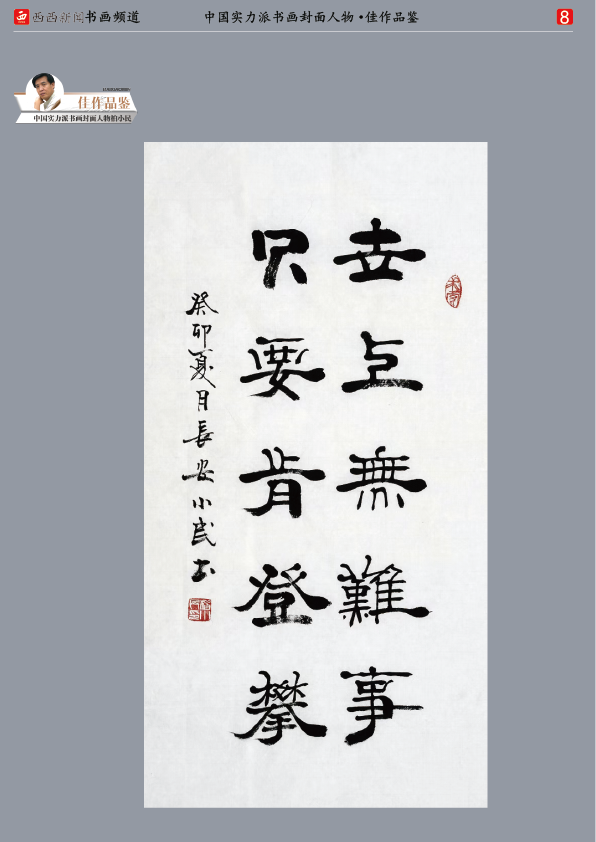 西西新闻书画频道
中国实力派书画封面人物·佳作品鉴
8
佳作品鉴
中国实力派书画封面人物柏小民
世上無難事
只要肯登攀
癸卯夏月長安小民书